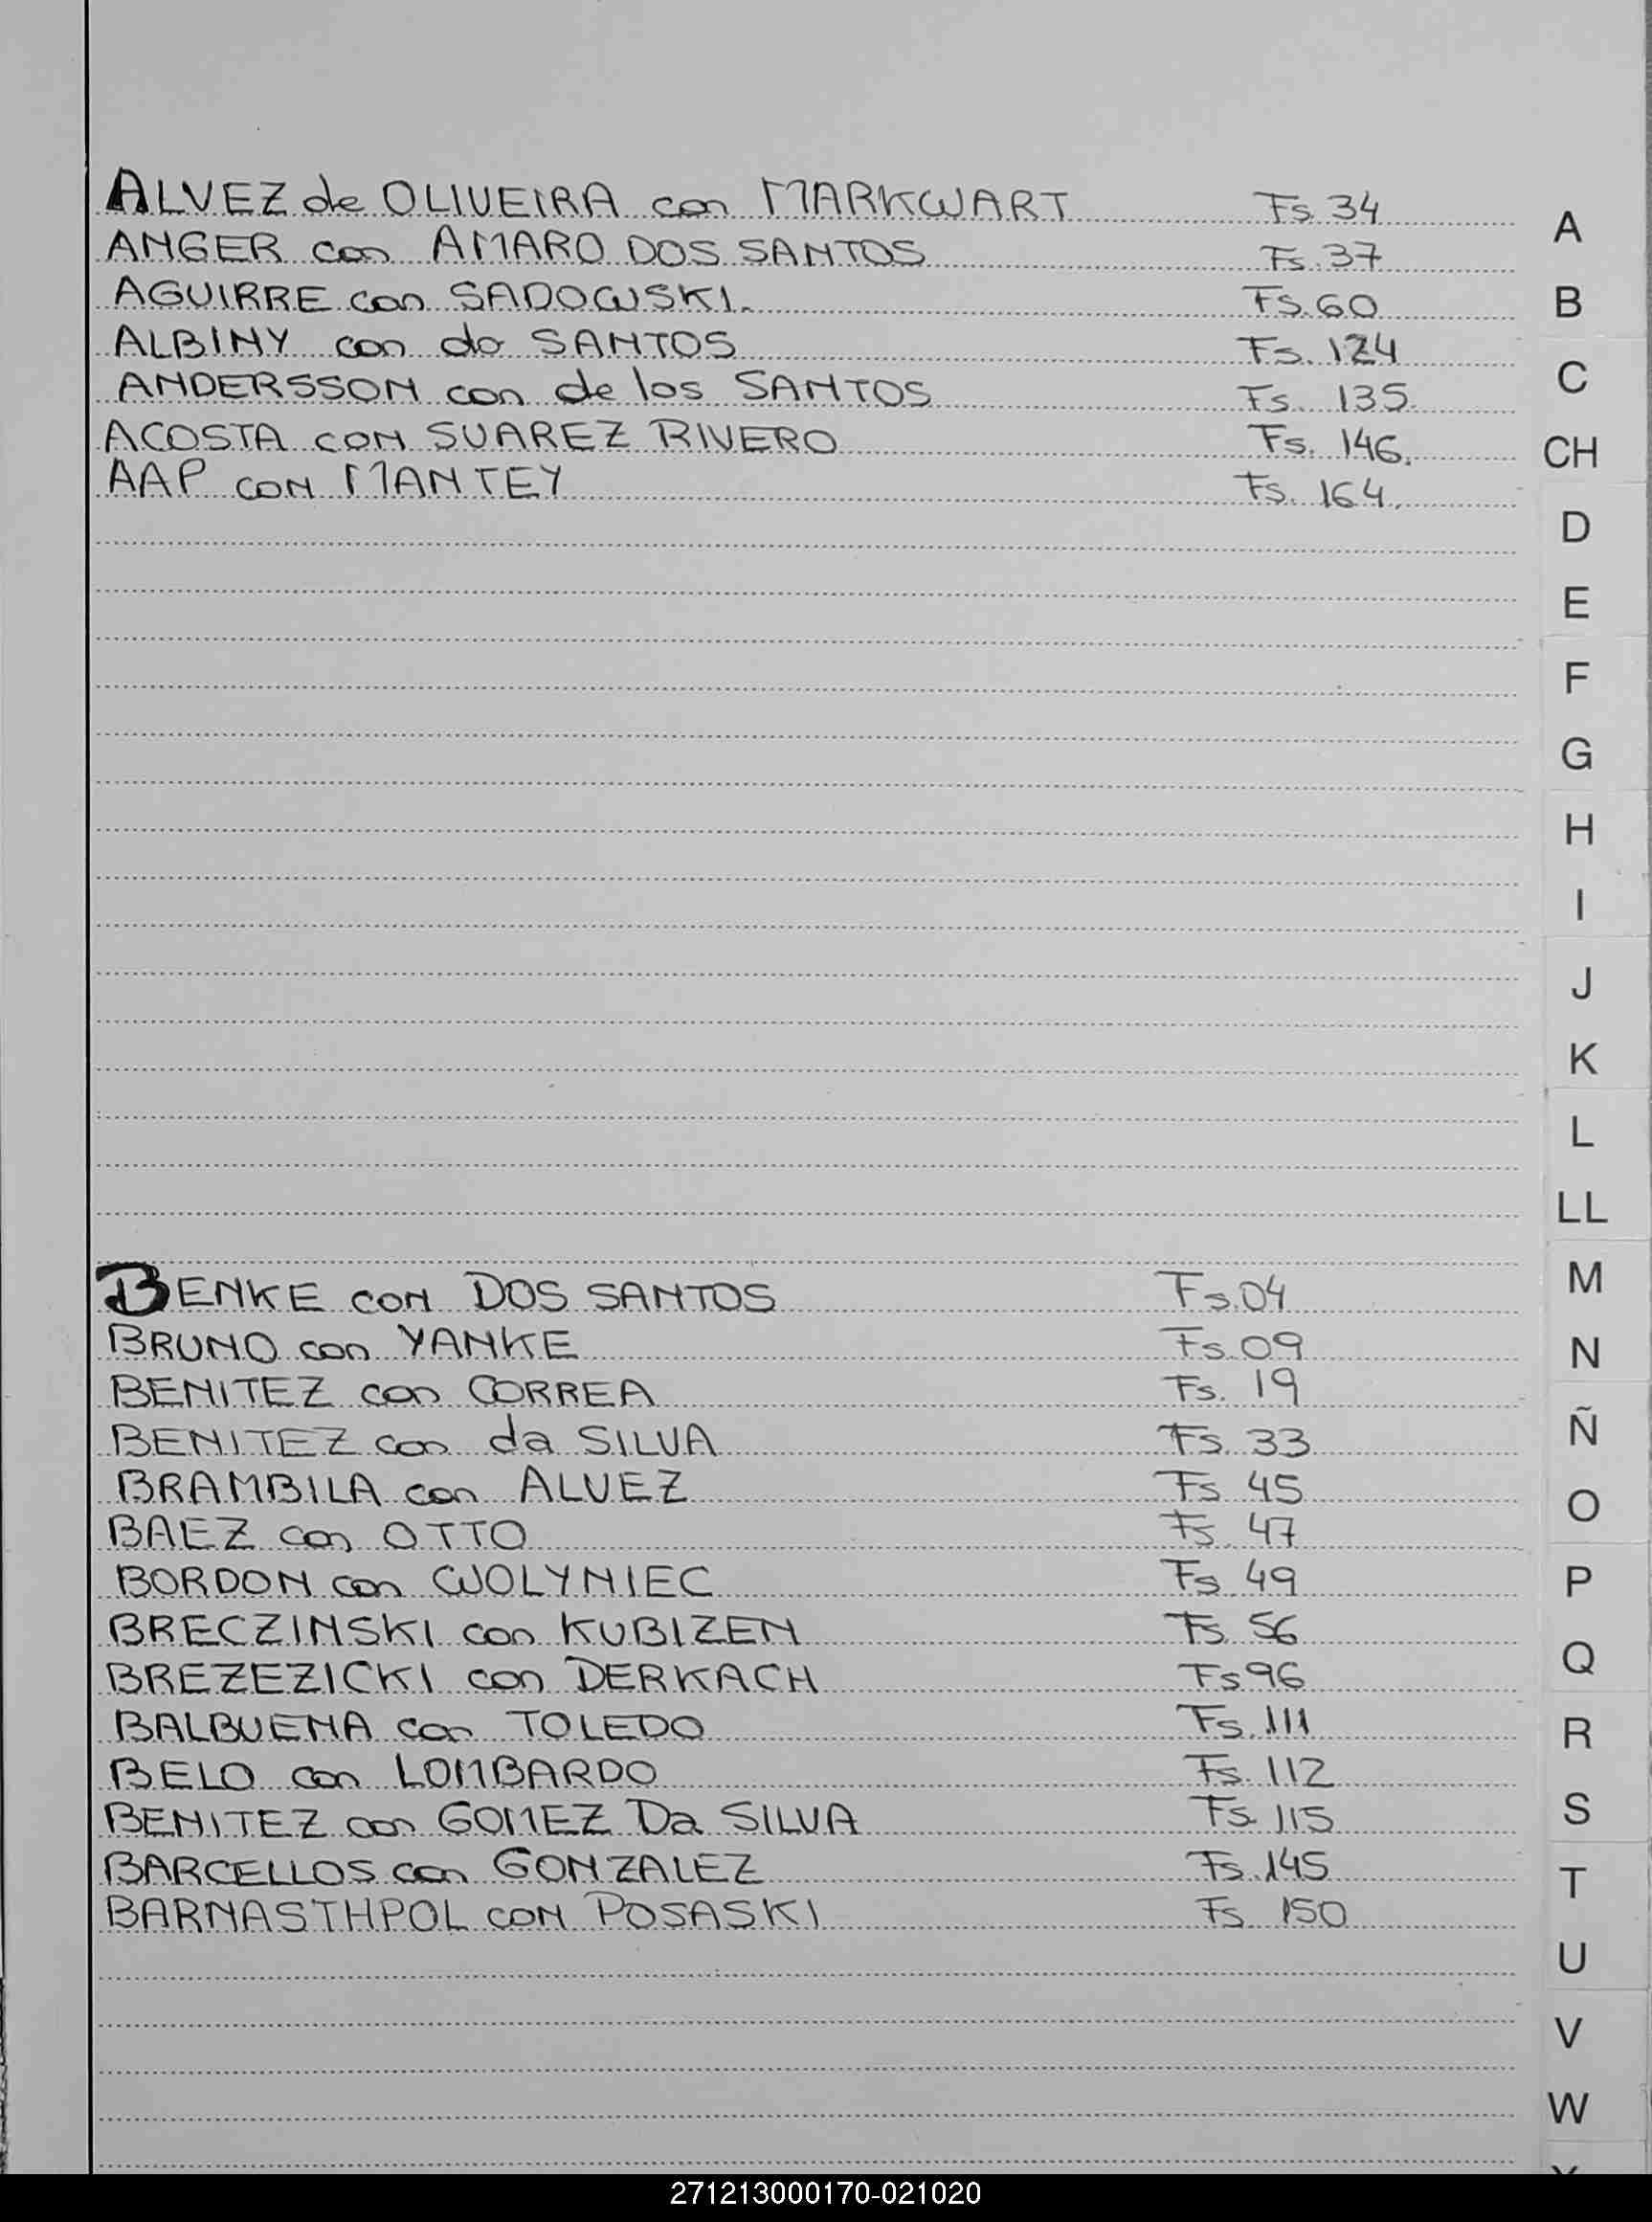 ALVEZ de OLIVEIRA con MARKWART Fs. 34
ANGER con AMARO DOS SANTOS Fs. 37
AGUIRRE con SADOWSKI. Fs. 60
ALBINY con do SANTOS Fs. 124
ANDERSSON con de los SANTOS Fs. 135
ACOSTA con SUAREZ RIVERO Fs. 146.
AAP con MANTEY Fs. 164.
BENKE con DOS SANTOS Fs. 04
BRUNO con YANKE Fs. 09
BENITEZ con CORREA Fs. 19
BENITEZ con da SILVA Fs. 33
BRAMBILA con ALVEZ Fs 45
BAEZ con OTTO Fs. 47
BORDON con WOLYNIEC Fs 49
BRECZINSKI con KUBIZEN Fs. 56
BREZEZICKI con DERKACH Fs 96
BALBUENA con TOLEDO Fs. 111
BELO con LOMBARDO Fs. 112
BENITEZ con GOMEZ Da SILVA Fs. 115
BARCELLOS con GONZALEZ Fs. 145
BARNASTHPOL con POSASKI Fs 150
A
B
C
CH
D
E
F
G
H
I
J
K
L
LL
M
N
Ñ
O
P
Q
R
S
T
U
V
W
271213000170-021020